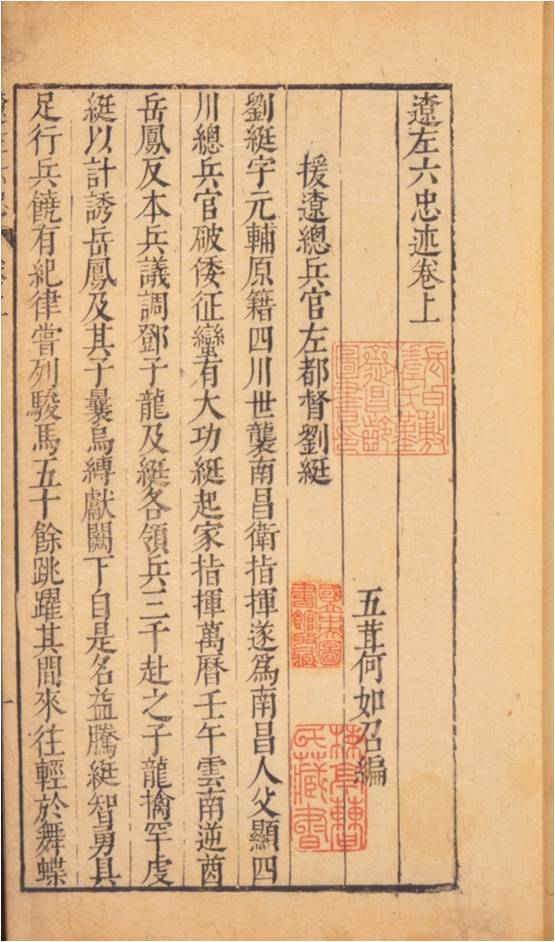 遼左六忠述卷上
五茸何如召編
援遼總兵官左都督劉綎
劉綎字元輔原籍四川世襲南昌衛指揮遂爲南昌人父顯四
川總兵官破倭征蠻有大功綎起家指揮萬曆壬午雲南逆酋
岳鳳反本兵議調鄧子龍及綎各領兵三千赴之子龍擒罕虔
綎以計誘岳鳳及其子曩烏縛獻闕下自是名益騰綎智勇具
足行兵饒有紀律嘗列駿馬五十餘跳躍其間來往輕於舞蝶
國立北平圖書館收藏